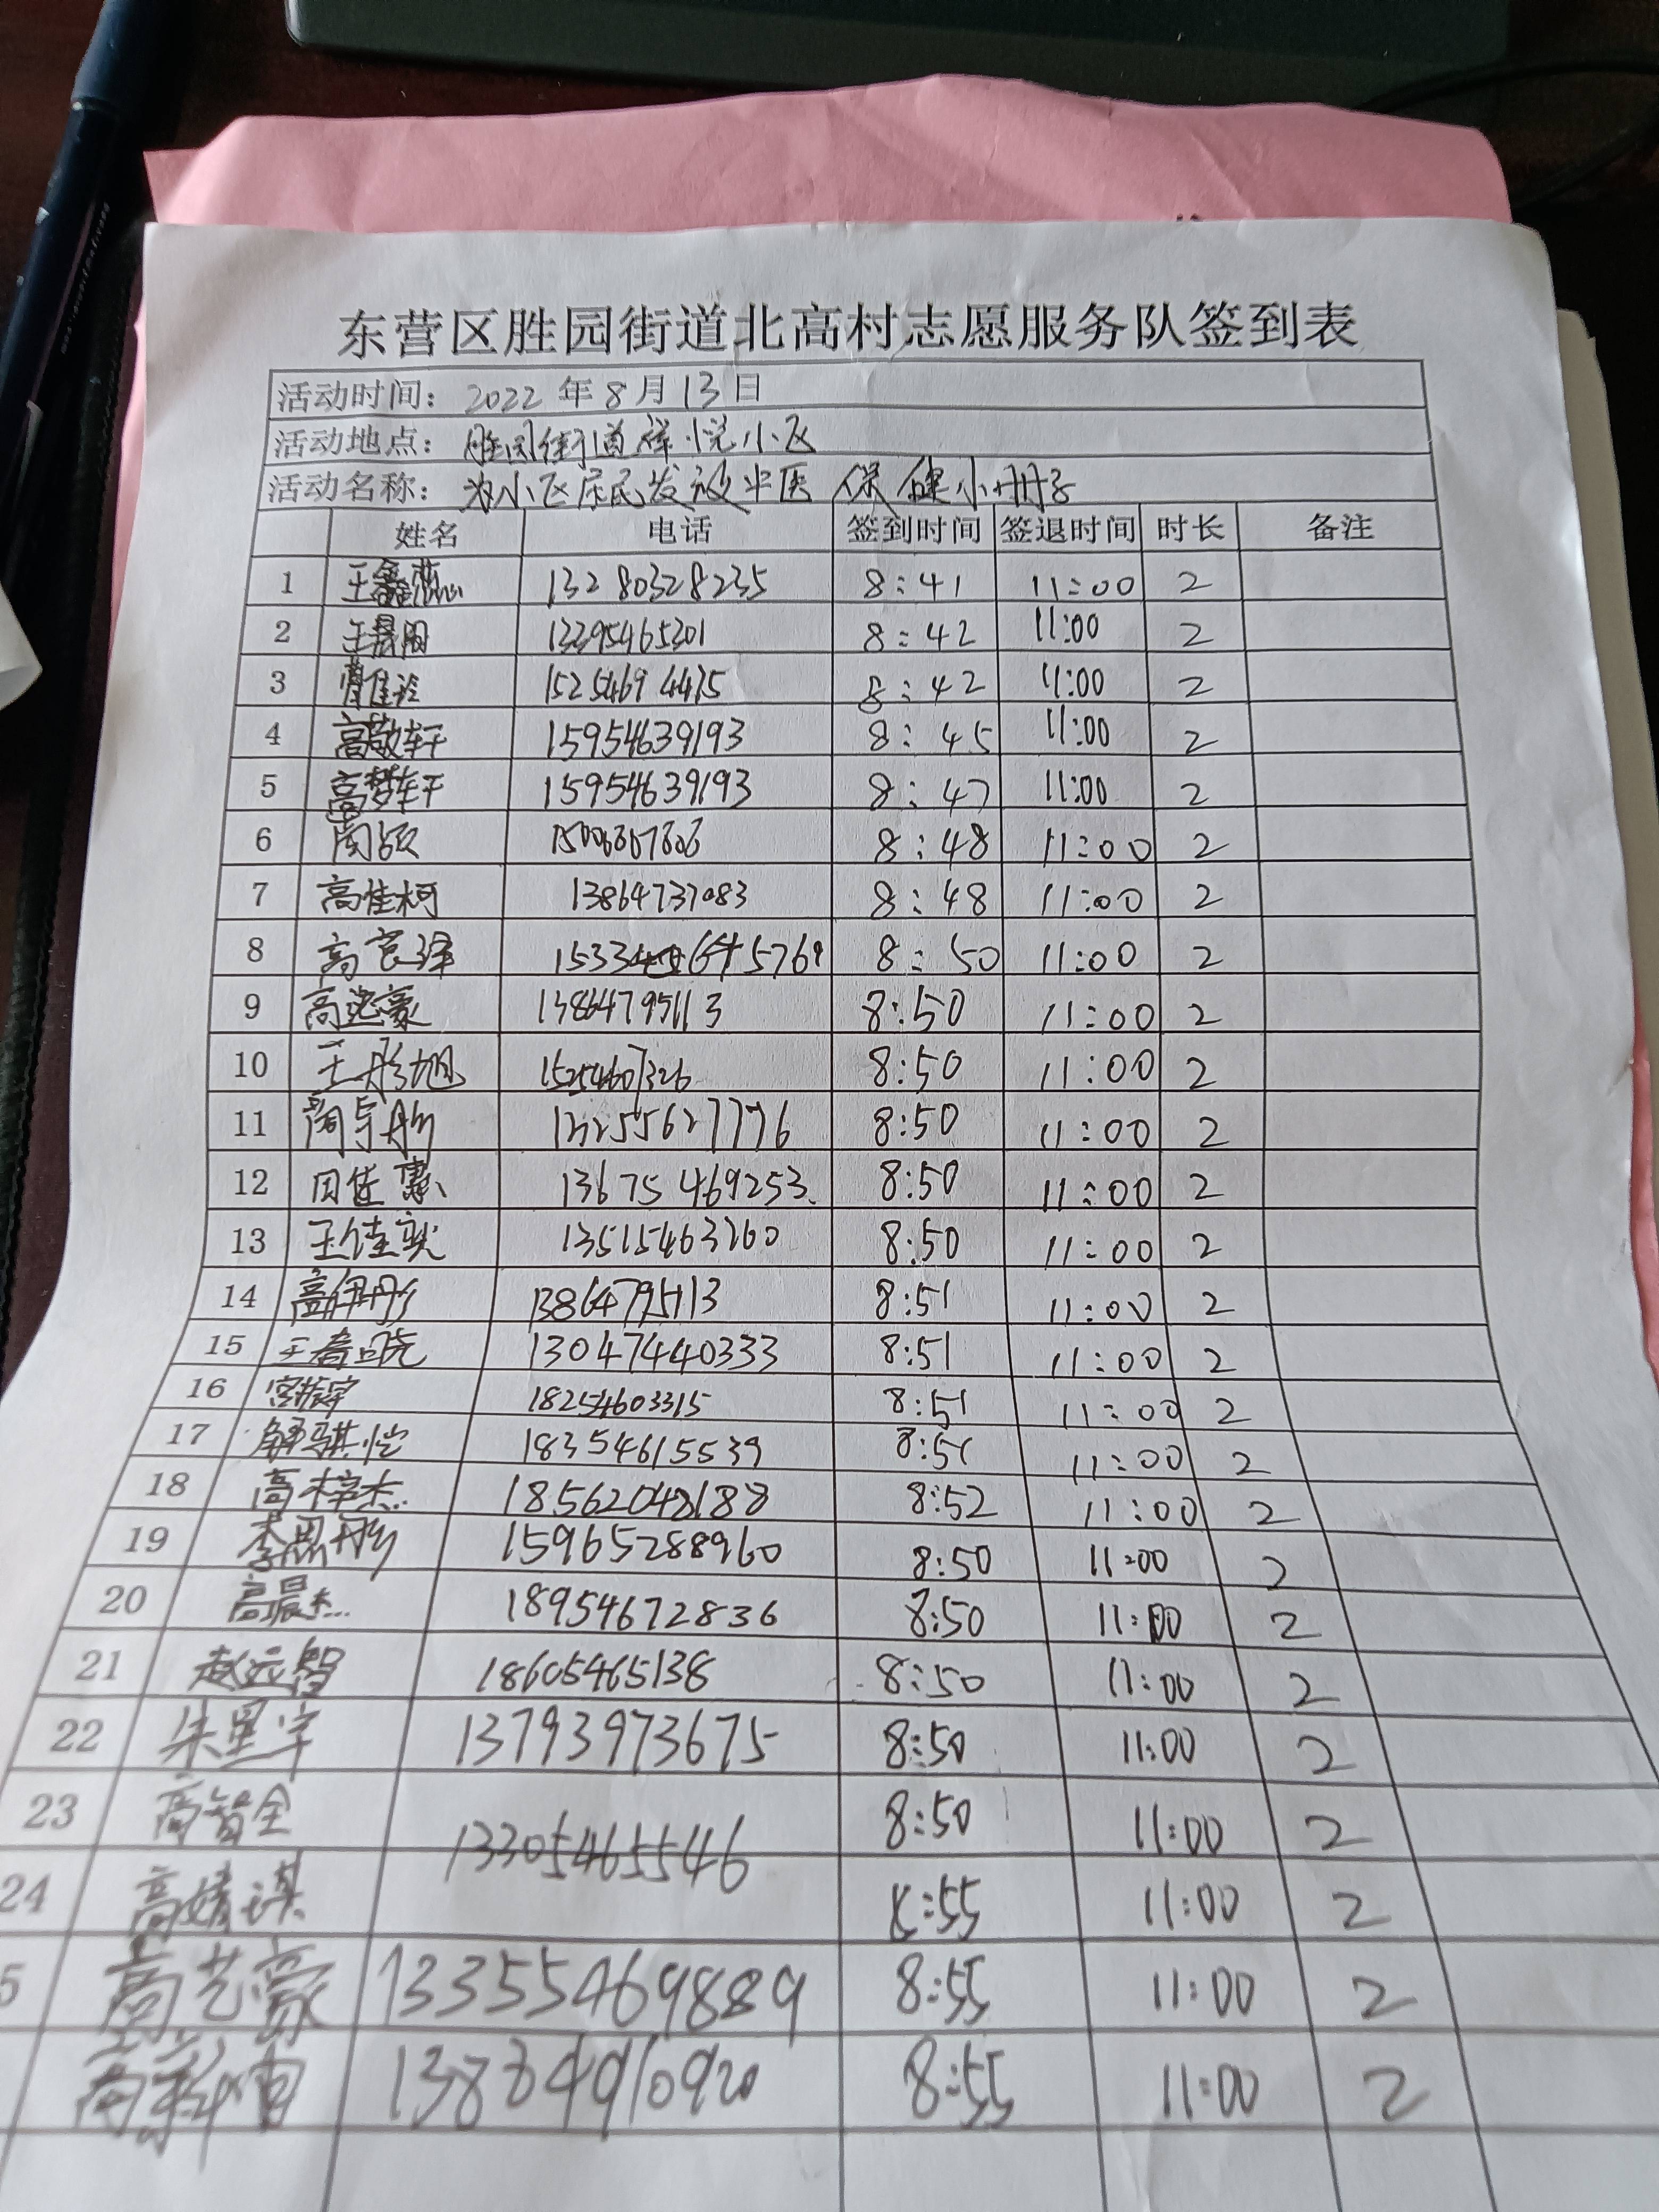 东营区胜园街道北高村志愿服务队签到表
活动时间：2022年8月13日
活动地点：胜园街道祥悦小区
活动名称：为小区居民发放中医保健小册子
姓名 电话 签到时间 签退时间 时长 备注
1 王鑫 13280328235 8:41 11:00 2
2 王晨阳 13395465301 8:42 11:00 2
3 15254694415 8:42 11:00 2
4 高敬轩 15954639193 8:45 11:00 2
5 高梦轩 15954639193 8:47 11:00 2
6 周颖 8:48 11:00 2
7 高佳柯 13864737083 8:48 11:00 2
8 高宫泽 8:50 11:00 2
9 高逸豪 13864795113 8:50 11:00 2
10 王彤旭 15254607326 8:50 11:00 2
11 周宇彤 13255627776 8:50 11:00 2
12 田佳惠 13675469253 8:50 11:00 2
13 王佳奕 13515463760 8:50 11:00 2
14 高伊彤 13864795113 8:51 11:00 2
15 王春晓 13047440333 8:51 11:00 2
16 宫振宇 18254603315 8:51 11:00 2
17 解骐恺 18354615539 8:51 11:00 2
18 高梓杰 18562048188 8:52 11:00 2
19 李思彤 15965288960 8:50 11:00 2
20 高晨杰 18954672836 8:50 11:00 2
21 赵远智 18605465138 8:50 11:00 2
22 朱星宇 13793973675 8:50 11:00 2
23 高智全 13305465546 8:50 11:00 2
24 高婧琪 8:55 11:00 2
5 高艺豪 13355469889 8:55 11:00 2
高 8:55 11:00 2